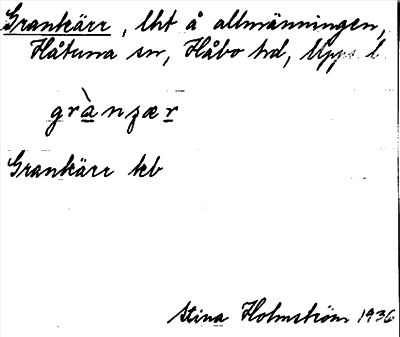 Grankärr, lht å allmänningen,
Håtuna sn, Håbo hd, Upps. l
grànʒær
Grankärr kb
Stina Holmström 1936